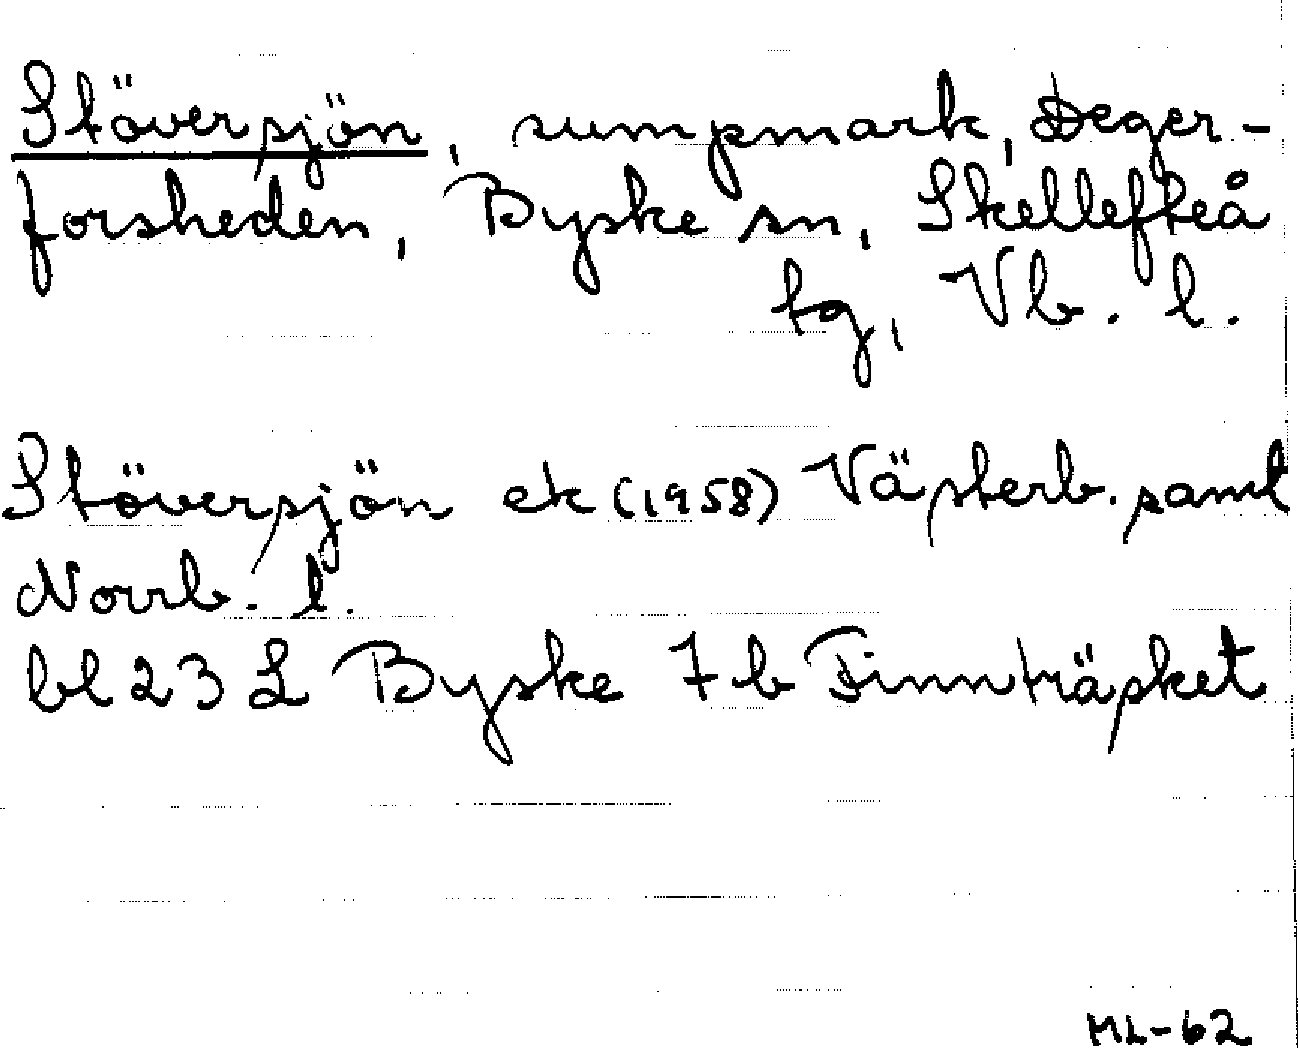 Stöversjön, sumpmark, Deger-
forsheden, Byske sn, Skellefteå
tg, Vb. l.
Stöversjön ek (1958) Västerb. samt
Norrb. l.
bl 23 L Byske 7 b Finnträsket
ML-62